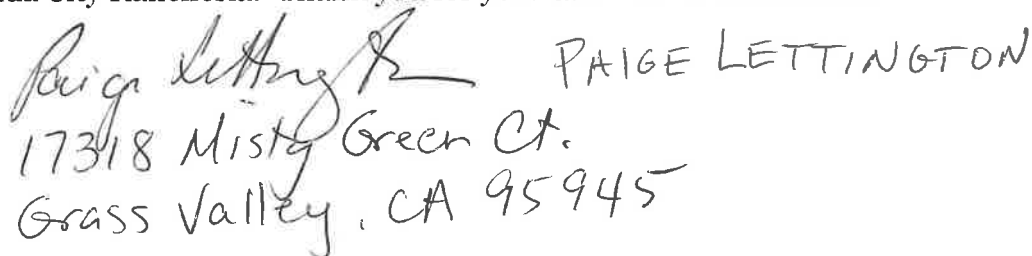 Paige Lettington PAIGE LETTINGTON
17318 Misty Green Ct.
Grass Valley, CA 95945